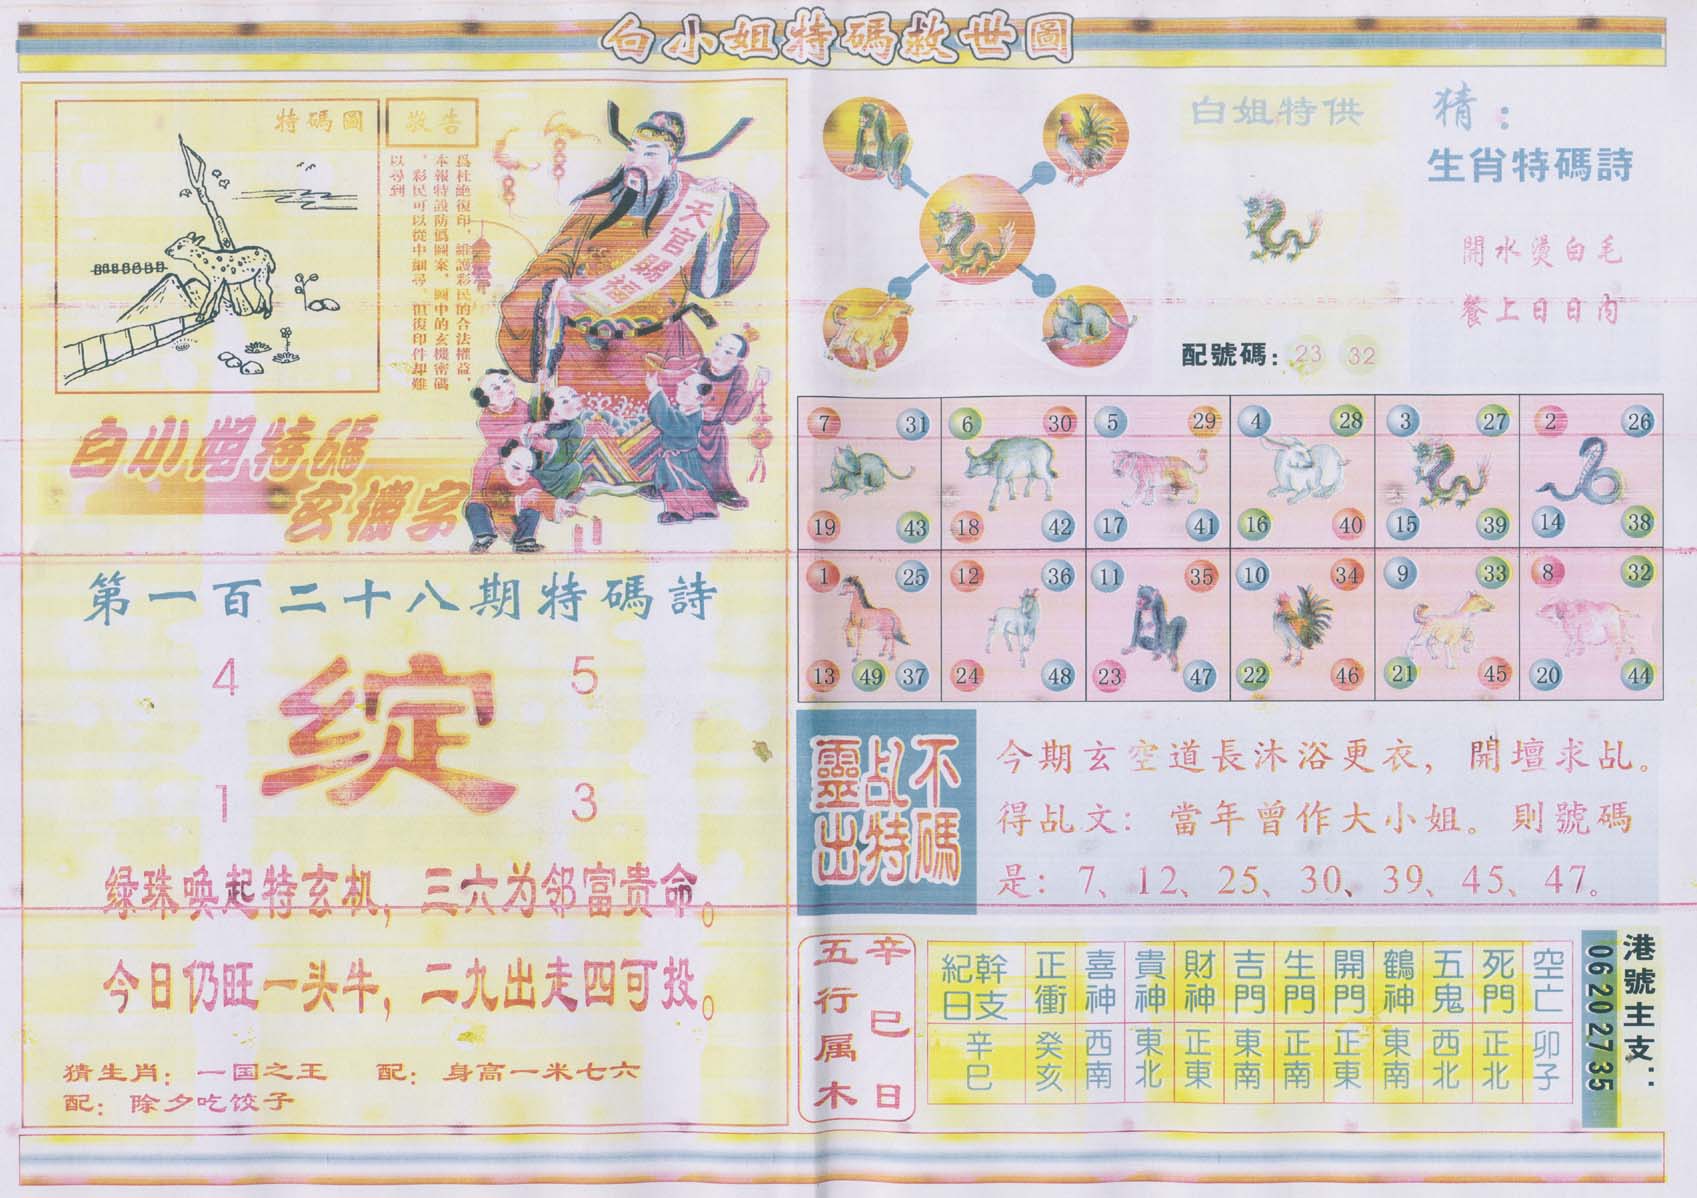 白小姐特碼救世圖
特碼圖
敬告
爲杜絶復印，維護彩民的合法權益，
本報特設防僞圖案，圖中的玄機密碼
，彩民可以從中細尋，但復印件却難
以尋到
天官賜福
白小姐特碼
玄機字
第一百二十八期特碼詩
4 5
绽
1 3
绿珠唤起特玄机，三六为邻富贵命。
今日仍旺一头牛，二九出走四可投。
猜生肖：一国之王 配：身高一米七六
配：除夕吃饺子
白姐特供
配號碼：23 32
猜：
生肖特碼詩
開水燙白毛
餐上日日肉
7 31 6 30 5 29 4 28 3 27 2 26
19 43 18 42 17 41 16 40 15 39 14 38
1 25 12 36 11 35 10 34 9 33 8 32
13 49 37 24 48 23 47 22 46 21 45 20 44
不碼
乩特
靈出
今期玄空道長沐浴更衣，開壇求乩。
得乩文：當年曾作大小姐。則號碼
是：7、12、25、30、39、45、47。
辛巳日
五行属木
幹支紀日 正衝 喜神 貴神 財神 吉門 生門 開門 鶴神 五鬼 死門 空亡
辛巳 癸亥 西南 東北 正東 東南 正南 正東 東南 西北 正北 卯子
港號主支：
06 20 27 35